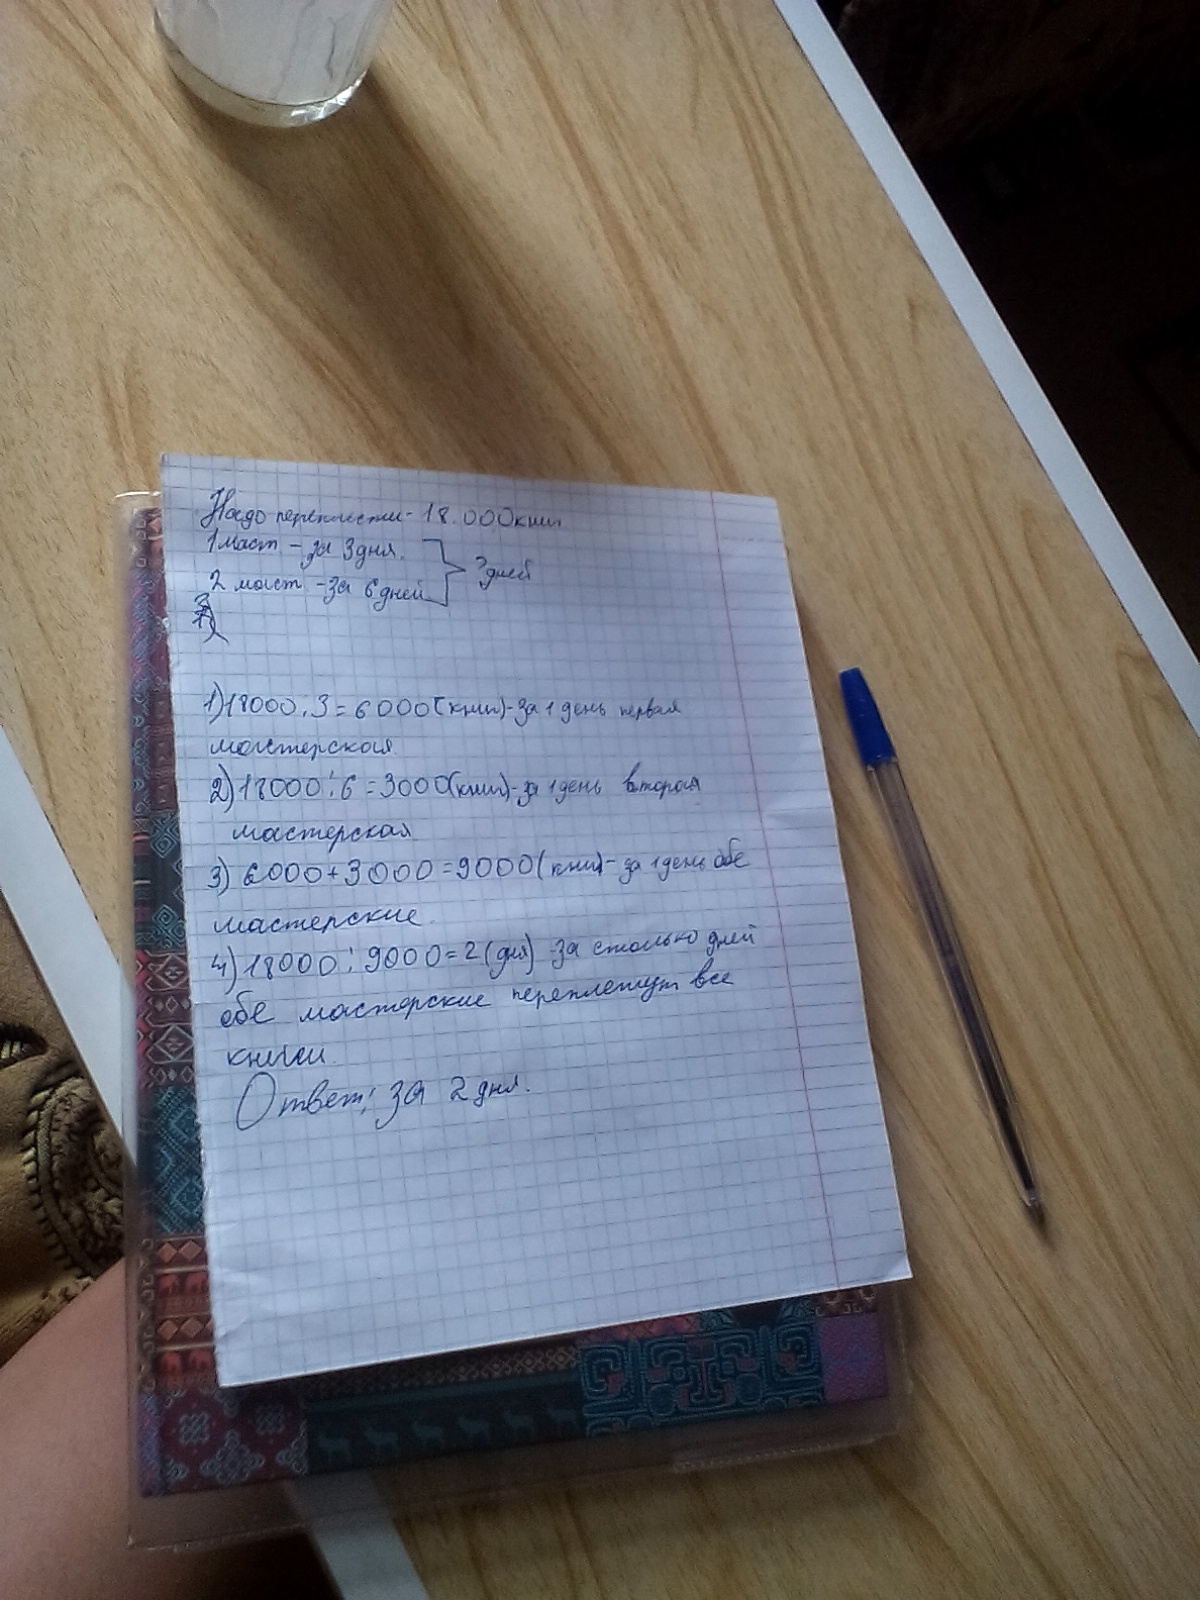 Надо переплести - 18.000 книг
1 маст - за 3 дня.
? дней
2 маст. - за 6 дней
1) 18000 : 3 = 6000 (книг) - за 1 день первая
мастерская.
2) 18000 : 6 = 3000 (книг) - за 1 день вторая
мастерская
3) 6000 + 3000 = 9000 (книг) - за 1 день обе
мастерские.
4) 18000 : 9000 = 2 (дня) - за столько дней
обе мастерские переплетут все
книги.
Ответ: за 2 дня.